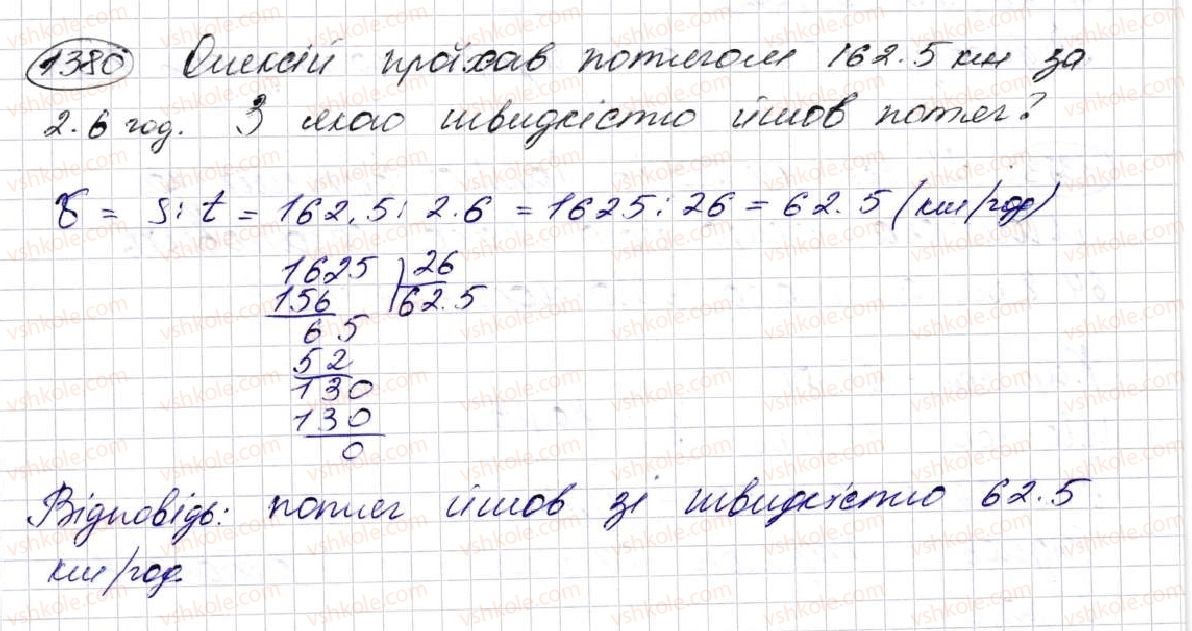 1380 Олексій проїхав потягом 162.5 км за
2.6 год. З якою швидкістю йшов потяг?
v = s : t = 162,5 : 2.6 = 1625 : 26 = 62.5 (км/год)
1625 | 26
156 | 62.5
65
52
130
130
0
Відповідь: потяг йшов зі швидкістю 62.5
км/год
vshkole.com